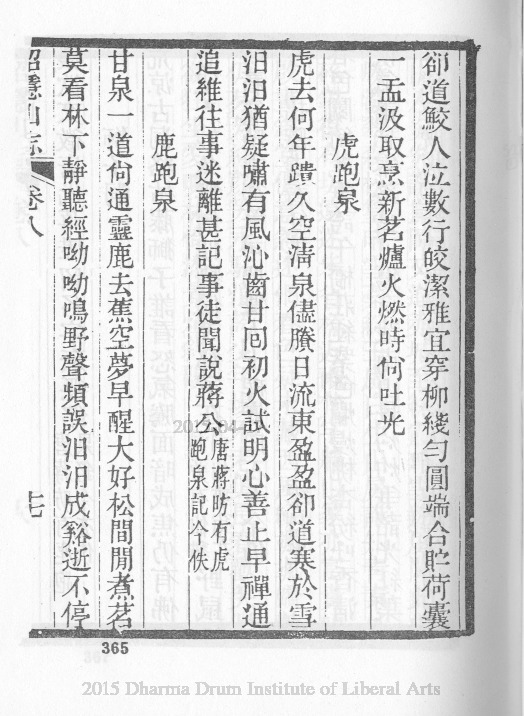 卻道鮫人泣數行皎潔雅宜穿柳綫勻圓端合貯荷囊
一盂汲取烹新茗爐火燃時尙吐光
虎跑泉
虎去何年蹟久空淸泉儘賸日流東盈盈卻道寒於雪
汨汨猶疑嘯有風沁齒甘回初火試明心善止早禪通
追維往事迷離甚記事徒聞說蔣公唐蔣昉有虎
跑泉記今佚
鹿跑泉
甘泉一道尙通靈鹿去蕉空夢早醒大好松間閒煮茗
莫看林下靜聽經呦呦鳴野聲頻誤汨汨成谿逝不停
招隱山志 卷八
十七
365
2015 Dharma Drum Institute of Liberal Arts